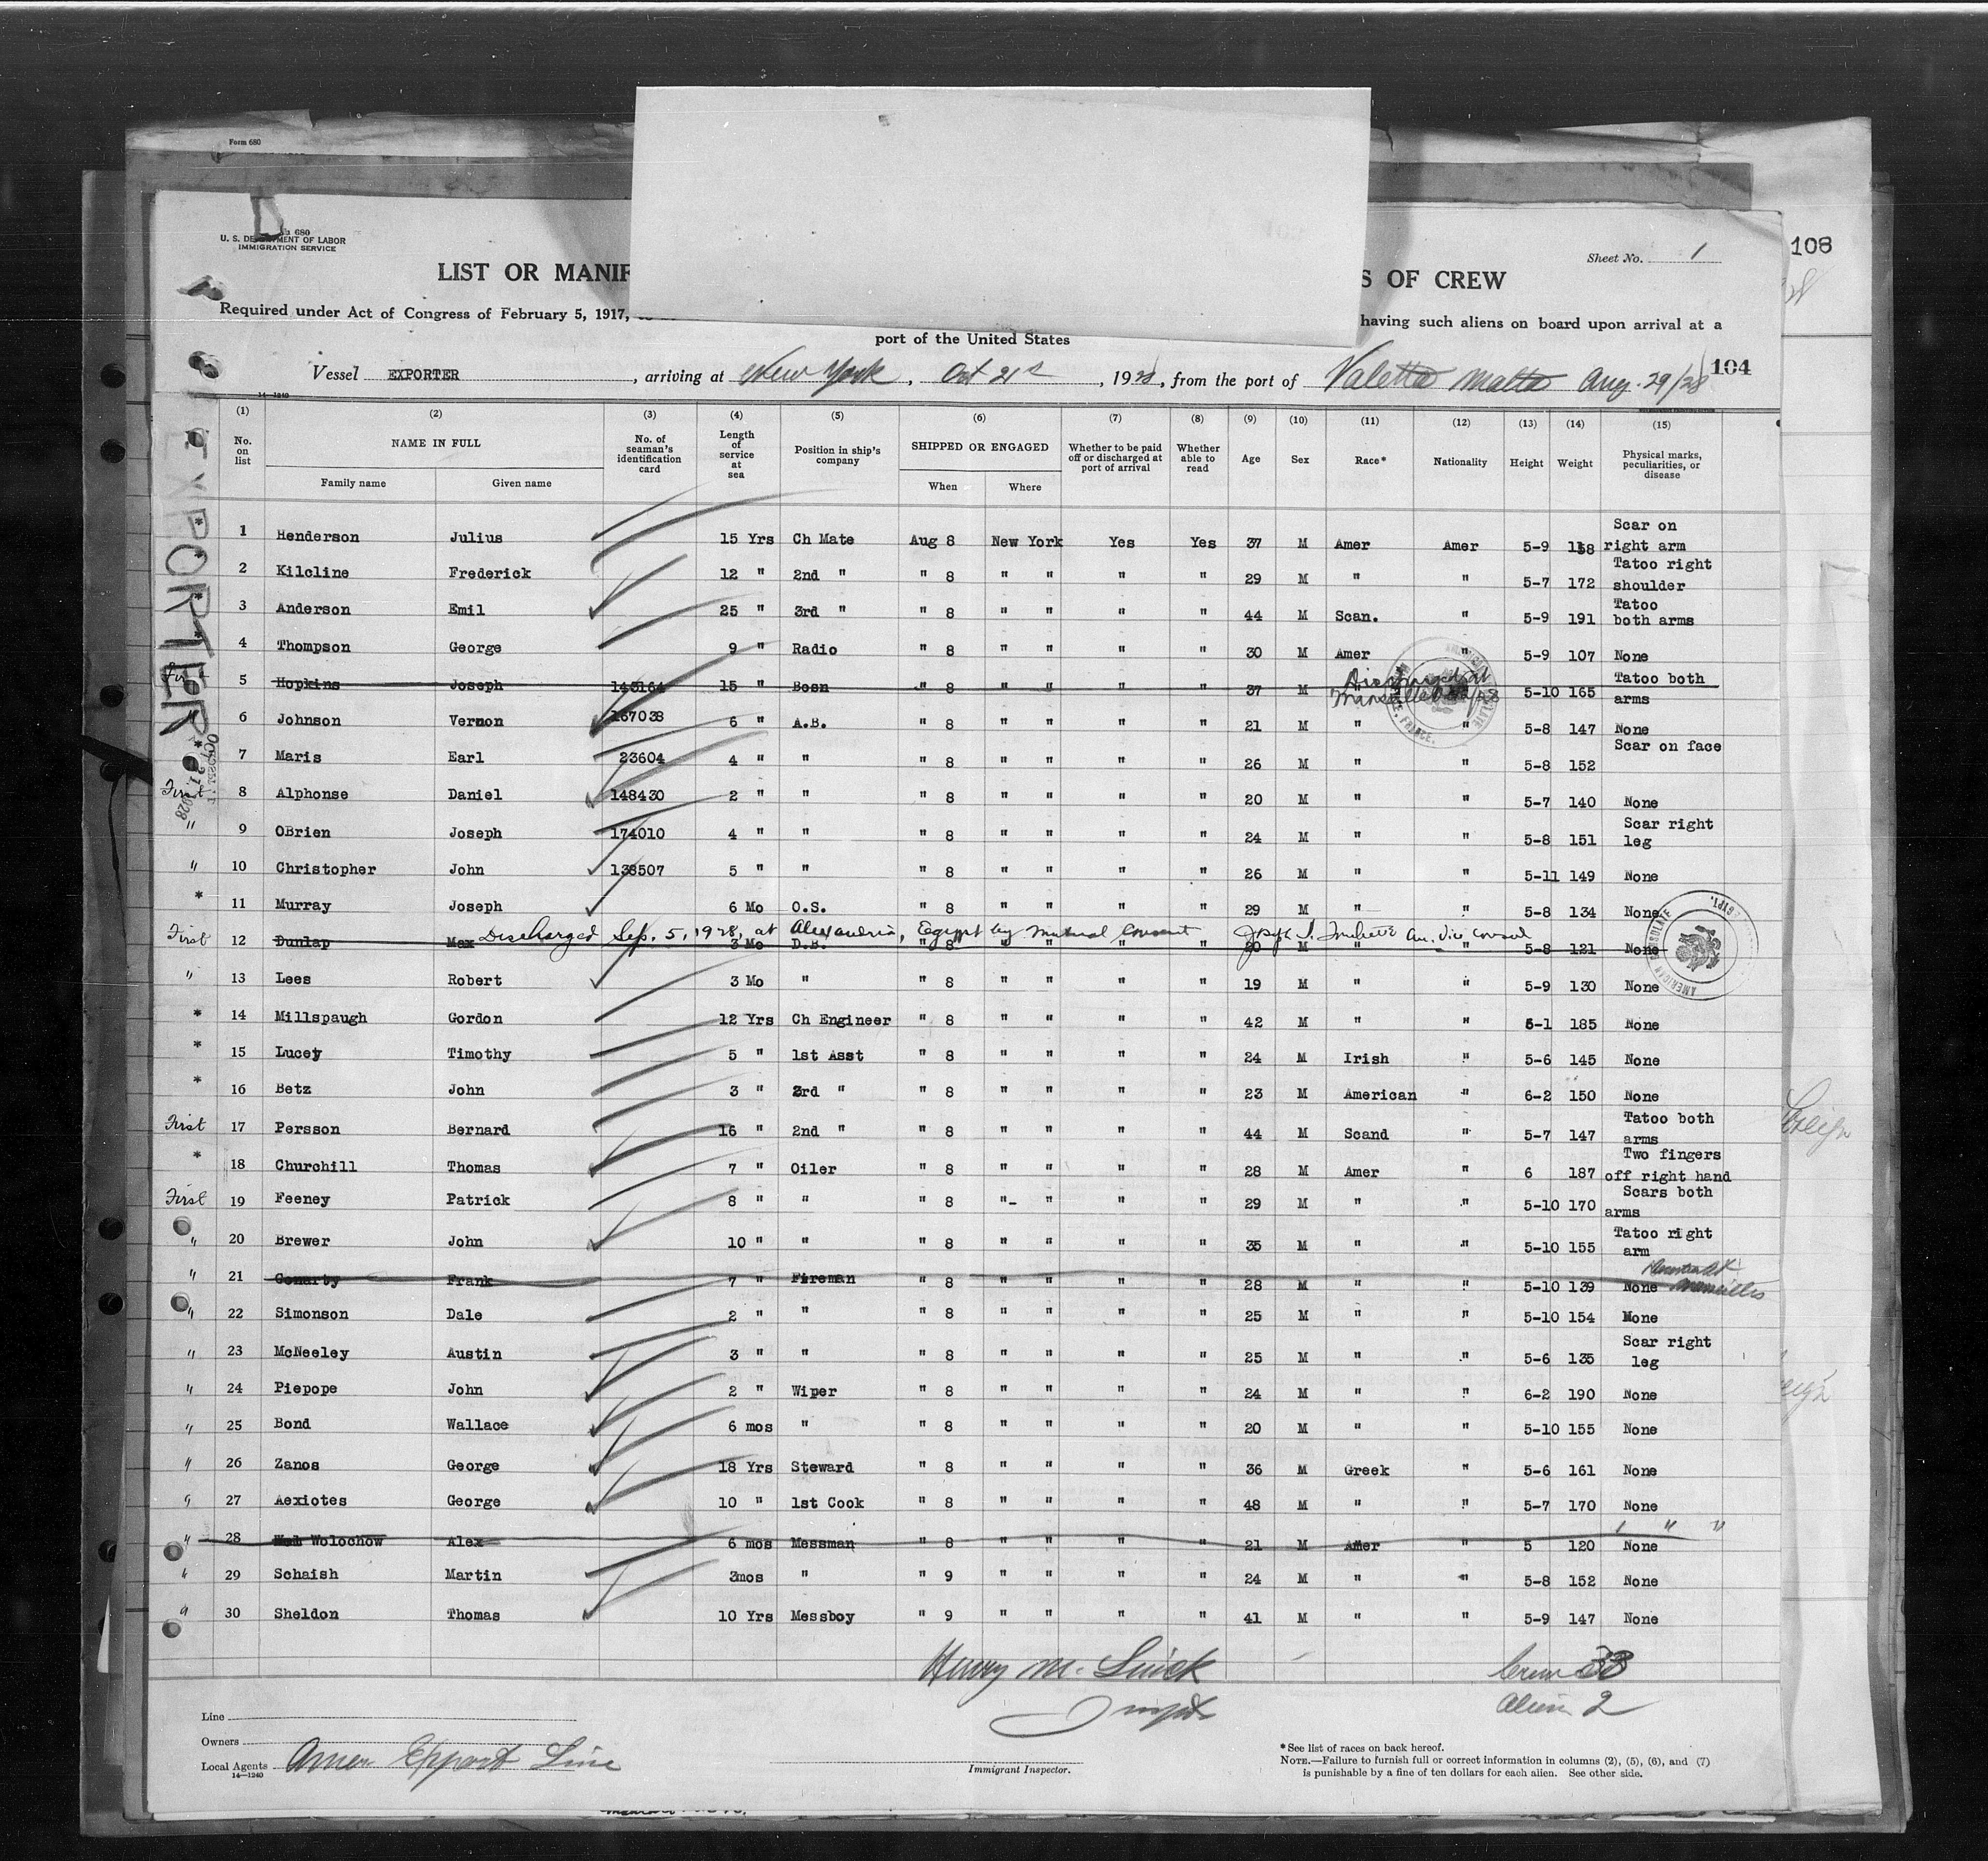 Form 680
680
U. S. DEPARTMENT OF LABOR
IMMIGRATION SERVICE
Sheet No. 1
108
LIST OR MANIF
S OF CREW
Required under Act of Congress of February 5, 1917,
having such aliens on board upon arrival at a
port of the United States
Vessel EXPORTER, arriving at New York, Oct 21st, 1928, from the port of Valetta Malta Aug. 29/28 104
14—1240
(1) (2) (3) (4) (5) (6) (7) (8) (9) (10) (11) (12) (13) (14) (15)
No. on list NAME IN FULL No. of seaman's identification card Length of service at sea Position in ship's company SHIPPED OR ENGAGED Whether to be paid off or discharged at port of arrival Whether able to read Age Sex Race* Nationality Height Weight Physical marks, peculiarities, or disease
Family name Given name When Where
EXPORTER
OCT 21 1928
1 Henderson Julius 15 Yrs Ch Mate Aug 8 New York Yes Yes 37 M Amer Amer 5-9 158 Scar on right arm
2 Kilcline Frederick 12 " 2nd " " 8 " " " " 29 M " " 5-7 172 Tatoo right shoulder
3 Anderson Emil 25 " 3rd " " 8 " " " " 44 M Scan. " 5-9 191 Tatoo both arms
4 Thompson George 9 " Radio " 8 " " " " 30 M Amer " 5-9 107 None
5 Hopkins Joseph 143164 15 " Bosn " 8 " " " " 37 M 5-10 165 Tatoo both arms
6 Johnson Vernon 167038 6 " A.B. " 8 " " " " 21 M " " 5-8 147 None
7 Maris Earl 23604 4 " " " 8 " " " " 26 M " " 5-8 152 Scar on face
First 8 Alphonse Daniel 148430 2 " " " 8 " " " " 20 M " " 5-7 140 None
" 9 OBrien Joseph 174010 4 " " " 8 " " " " 24 M " " 5-8 151 Scar right leg
" 10 Christopher John 138507 5 " " " 8 " " " " 26 M " " 5-11 149 None
* 11 Murray Joseph 6 Mo O.S. " 8 " " " " 29 M " " 5-8 134 None
Discharged Sep. 5, 1928, at Alexandria, Egypt by mutual consent Vice Consul
First 12 Dunlap Max 3 Mo D.B. " 8 " " " " 20 M " " 5-8 121 None
" 13 Lees Robert 3 Mo " " 8 " " " " 19 M " " 5-9 130 None
* 14 Millspaugh Gordon 12 Yrs Ch Engineer " 8 " " " " 42 M " " 6-1 185 None
* 15 Lucey Timothy 5 " 1st Asst " 8 " " " " 24 M Irish " 5-6 145 None
* 16 Betz John 3 " 3rd " " 8 " " " " 23 M American " 6-2 150 None
First 17 Persson Bernard 16 " 2nd " " 8 " " " " 44 M Scand " 5-7 147 Tatoo both arms
* 18 Churchill Thomas 7 " Oiler " 8 " " " " 28 M Amer " 6 187 Two fingers off right hand
First 19 Feeney Patrick 8 " " " 8 "- " " " 29 M " " 5-10 170 Scars both arms
" 20 Brewer John 10 " " " 8 " " " " 35 M " " 5-10 155 Tatoo right arm
" 21 Gonarty Frank 7 " Fireman " 8 " " " " 28 M " " 5-10 139 None Marseilles
" 22 Simonson Dale 2 " " " 8 " " " " 25 M " " 5-10 154 None
" 23 McNeeley Austin 3 " " " 8 " " " " 25 M " " 5-6 135 Scar right leg
" 24 Piepope John 2 " Wiper " 8 " " " " 24 M " " 6-2 190 None
" 25 Bond Wallace 6 mos " " 8 " " " " 20 M " " 5-10 155 None
" 26 Zanos George 18 Yrs Steward " 8 " " " " 36 M Greek " 5-6 161 None
" 27 Aexiotes George 10 " 1st Cook " 8 " " " " 48 M " " 5-7 170 None
" 28 Wolochow Alex 6 mos Messman " 8 " " " " 21 M Amer " 5 120 None
" 29 Schaish Martin 3mos " " 9 " " " " 24 M " " 5-8 152 None
" 30 Sheldon Thomas 10 Yrs Messboy " 9 " " " " 41 M " " 5-9 147 None
Henry M.
Crew 33
Alien 2
Line
Owners
Local Agents Amer Export Line
14—1240
Immigrant Inspector.
* See list of races on back hereof.
NOTE.—Failure to furnish full or correct information in columns (2), (5), (6), and (7)
is punishable by a fine of ten dollars for each alien. See other side.